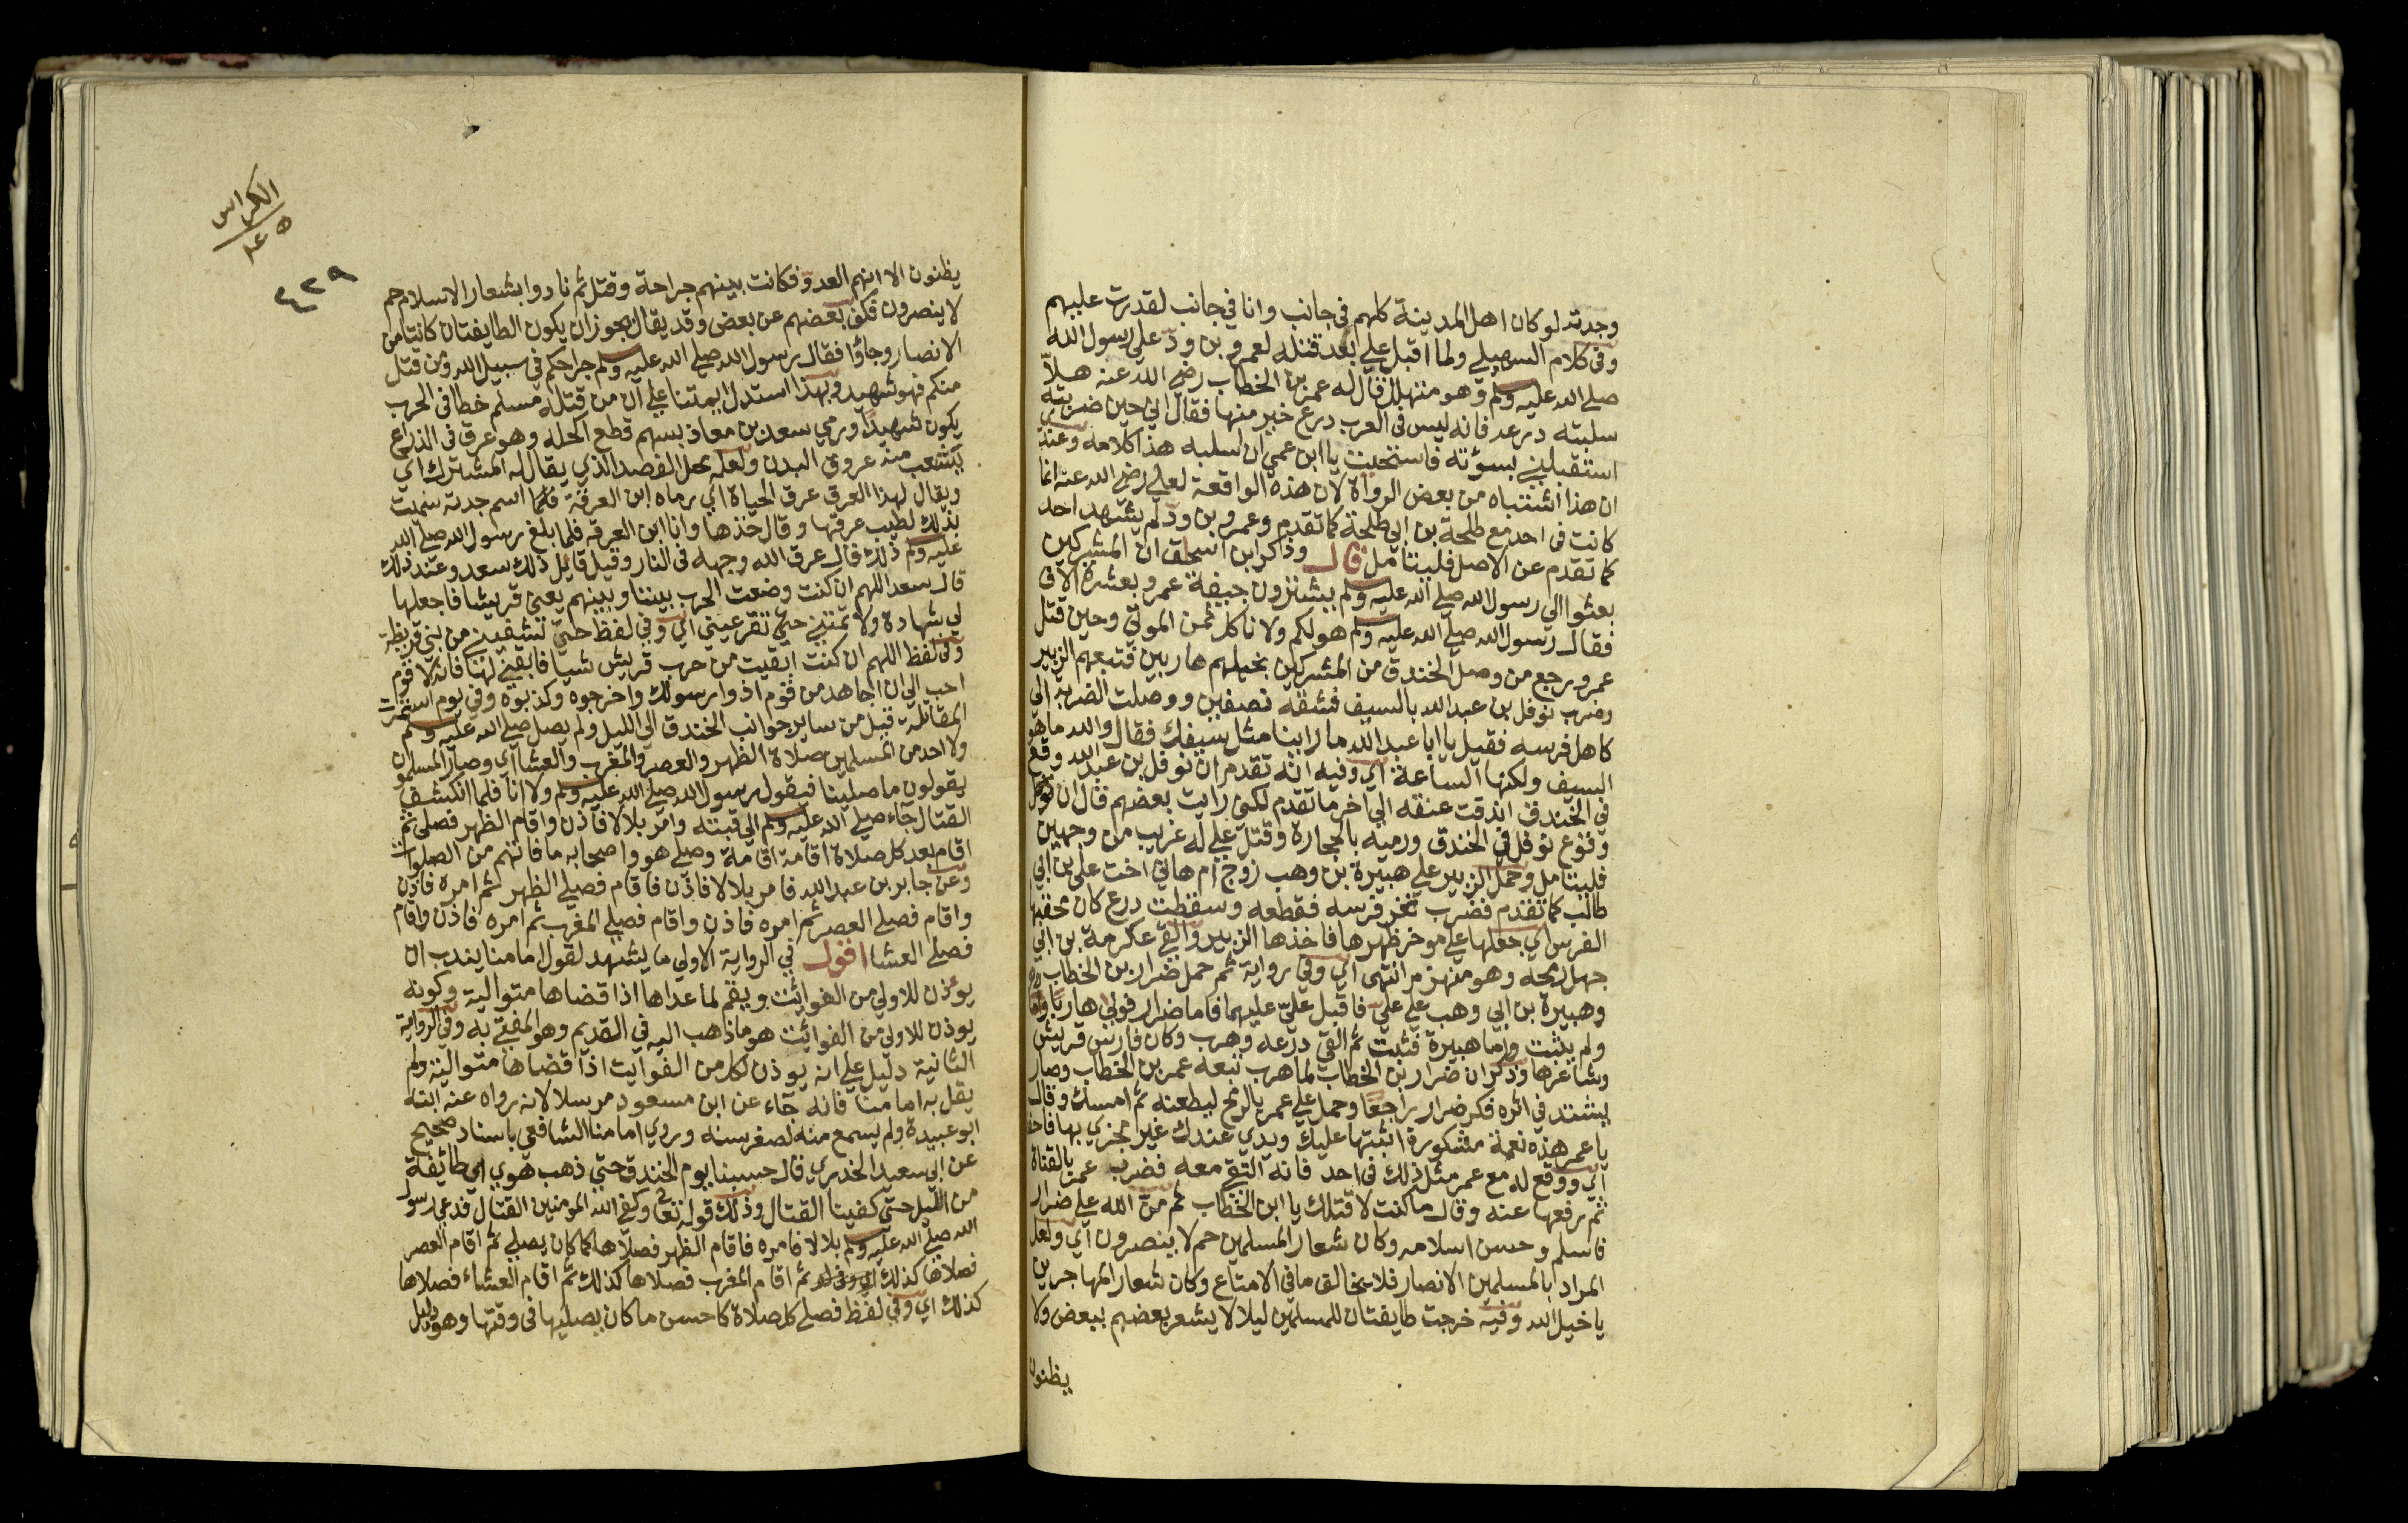 وجدته لو كان اهل المدينة كلهم في جانب وانا في جانب لقدرت عليهم
وفى كلام السهيلي ولما اقبل علي بعد قتله لعمرو بن ود على رسول الله
صلى الله عليه وسلم وهو متهلل قال له عمر بن الخطاب رضي الله عنه هلا
سلبته درعه فانه ليس فى العرب درع خير منها فقال اني حين ضربته
استقبلني بسوته فاستحييت يا ابن عمي ان اسلبه هذا كلامه وعندي
ان هذا اشتباه من بعض الرواة لان هذه الواقعة لعلي رضي الله عنه انما
كانت فى احد مع طلحة بن ابي طلحة كما تقدم وعمرو بن ود لم يشهد احد
كما تقدم عن الاصل فليتامل قال وذكر ابن اسحاق ان المشركين
بعثوا الى رسول الله صلى الله عليه وسلم يشترون جيفة عمرو بعشرة الاف
فقال رسول الله صلى الله عليه وسلم هو لكم ولا ناكل ثمن الموتى وحين قتل
عمرو رجع من وصل الخندق من المشركين بخيلهم هاربين فتبعهم الزبير
وضرب نوفل بن عبد الله بالسيف فشقه نصفين ووصلت الضربة الى
كاهل فرسه فقيل يا ابا عبد الله ما راينا مثل سيفك فقال والله ما هو
السيف ولكنها الساعد اي وفيه انه تقدم ان نوفل بن عبد الله وقع
في الخندق اندقت عنقه الى اخر ما تقدم لكن رايت بعضهم قال ان
وقوع نوفل في الخندق ورميه بالحجارة وقتل علي له غريب من وجهين
فليتامل وحمل الزبير على هبيرة بن وهب زوج ام هاني اخت علي بن ابي
طالب كما تقدم فضرب ثغر فرسه فقطعه وسقطت درع كان محقبها
الفرس اي جعلها على موخر ظهرها فاخذها الزبير والقى عكرمة بن ابي
جهل رمحه وهو منهزم انتهى اي وفى رواية ثم حمل ضرار بن الخطاب
وهبيرة بن ابي وهب على علي فاقبل علي عليهما فاما ضرار فولى هاربا
ولم يثبت واما هبيرة فثبت ثم القى درعه وهرب وكان فارس قريش
وشاعرها وذكر ان ضرار بن الخطاب لما هرب تبعه عمر بن الخطاب وصار
يشتد في اثره فكر ضرار راجعا وحمل على عمر بالرمح ليطعنه ثم امسك وقال
يا عمر هذه نعمة مشكورة اثبتها عليك ويدي عندك غير مجزي بها
اي ووقع له مع عمر مثل ذلك فى احد فانه التقى معه فضرب عمر بالقناة
ثم رفعها عنه وقال ما كنت لاقتلك يا ابن الخطاب ثم من الله على ضرار
فاسلم وحسن اسلامه وكان شعار المسلمين حم لا ينصرون اي ولعل
المراد بالمسلمين الانصار فلا يخالف ما في الامتاع وكان شعار المهاجرين
يا خيل الله وفيه خرجت طايفتان للمسلمين ليلا لا يشعر بعضهم ببعض ولا
يظنون
الكراس
٤٣٩
يظنون الا انهم العدو فكانت بينهم جراحة وقتل ثم نادوا بشعار الاسلام حم
لا ينصرون فكف بعضهم عن بعض وقد يقال يجوز ان يكون الطايفتان كانتا من
الانصار وجاؤا فقال رسول الله صلى الله عليه وسلم جراحكم في سبيل الله ومن قتل
منكم فهو شهيد وبهذا استدل ايمتنا على ان من قتله مسلم خطا فى الحرب
يكون شهيدا ورمي سعد بن معاذ بسهم قطع اكحله وهو عرق فى الذراع
يتشعب منه عروق البدن ولعله محل الفصد الذي يقال له المشترك اي
ويقال لهذا العرق عرق الحياة اي رماه ابن العرقة اسم جدته سميت
بذلك لطيب عرقها وقال خذها وانا ابن العرقه فلما بلغ رسول الله صلى الله
عليه وسلم ذلك قال عرق الله وجهه فى النار وقيل قايل ذلك سعد وعند ذلك
قال سعد اللهم ان كنت وضعت الحرب بيننا وبينهم يعني قريشا فاجعلها
لي شهادة ولا تمتني حتى تقر عيني اي وفى لفظ حتى تشفيني من بني قريظة
وفى لفظ اللهم ان كنت ابقيت من حرب قريش شيا فابقني لها فانه لا قوم
احب الي ان اجاهد من قوم اذوا رسولك واخرجوه وكذبوه وفى يوم استمرت
المقاتلة قيل من ساير جوانب الخندق الى الليل ولم يصل صلى الله عليه وسلم
ولا احد من المسلمين صلاة الظهر والعصر والمغرب والعشا اي وصار المسلمون
يقولون ما صلينا فيقول رسول الله صلى الله عليه وسلم ولا انا فلما انكشف
القتال جاء صلى الله عليه وسلم الى قبته وامر بلالا فاذن واقام الظهر فصلى ثم
اقام بعد كل صلاة اقامة اقامة وصلى هو واصحابه ما فاتهم من الصلوات
وعن جابر بن عبد الله فامر بلالا فاذن فاقام فصلى الظهر ثم امره فاذن
واقام فصلى العصر ثم امره فاذن واقام فصلى المغرب ثم امره فاذن واقام
فصلى العشا اقول في الرواية الاولى ما يشهد لقول امامنا يندب ان
يوذن للاولى من الفوائت ويقم لما عداها اذا قضاها متوالية وكونه
يوذن للاولى من الفوائت هو ما ذهب اليه في القديم وهو المفتى به وفى الرواية
الثانية دليل على انه يوذن لكل من الفوايت اذا قضاها متوالية ولم
يقل به امامنا فانه جاء عن ابن مسعود مرسلا لانه رواه عنه ابنه
ابو عبيدة ولم يسمع منه لصغر سنه وروي امامنا الشافعي باسناد صحيح
عن ابي سعيد الخدري قال حبسنا يوم الخندق حتى ذهب هوي اي طائفة
من الليل حتى كفينا القتال وذلك قوله تعالى وكفى الله المومنين القتال فدعى رسول
الله صلى الله عليه وسلم بلالا فامره فاقام الظهر فصلاها كما كان يصلي ثم اقام العصر
فصلاها كذلك ثم اقام المغرب فصلاها كذلك ثم اقام العشاء فصلاها
كذلك اي وفي لفظ فصلى كل صلاة كاحسن ما كان يصليها فى وقتها وهو دليل